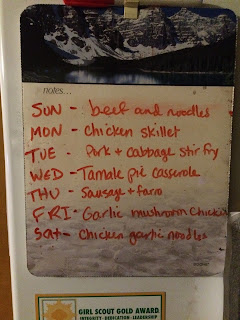 notes...
SUN - beef and noodles
MON - Chicken skillet
TUE - Pork + cabbage stir fry
WED - Tamale pie casserole
THU - Sausage + farro
FRI - Garlic mushroom Chicken
Sat - Chicken garlic noodles
GIRL SCOUT GOLD AWARD
INTEGRITY · DEDICATION · LEADERSHIP